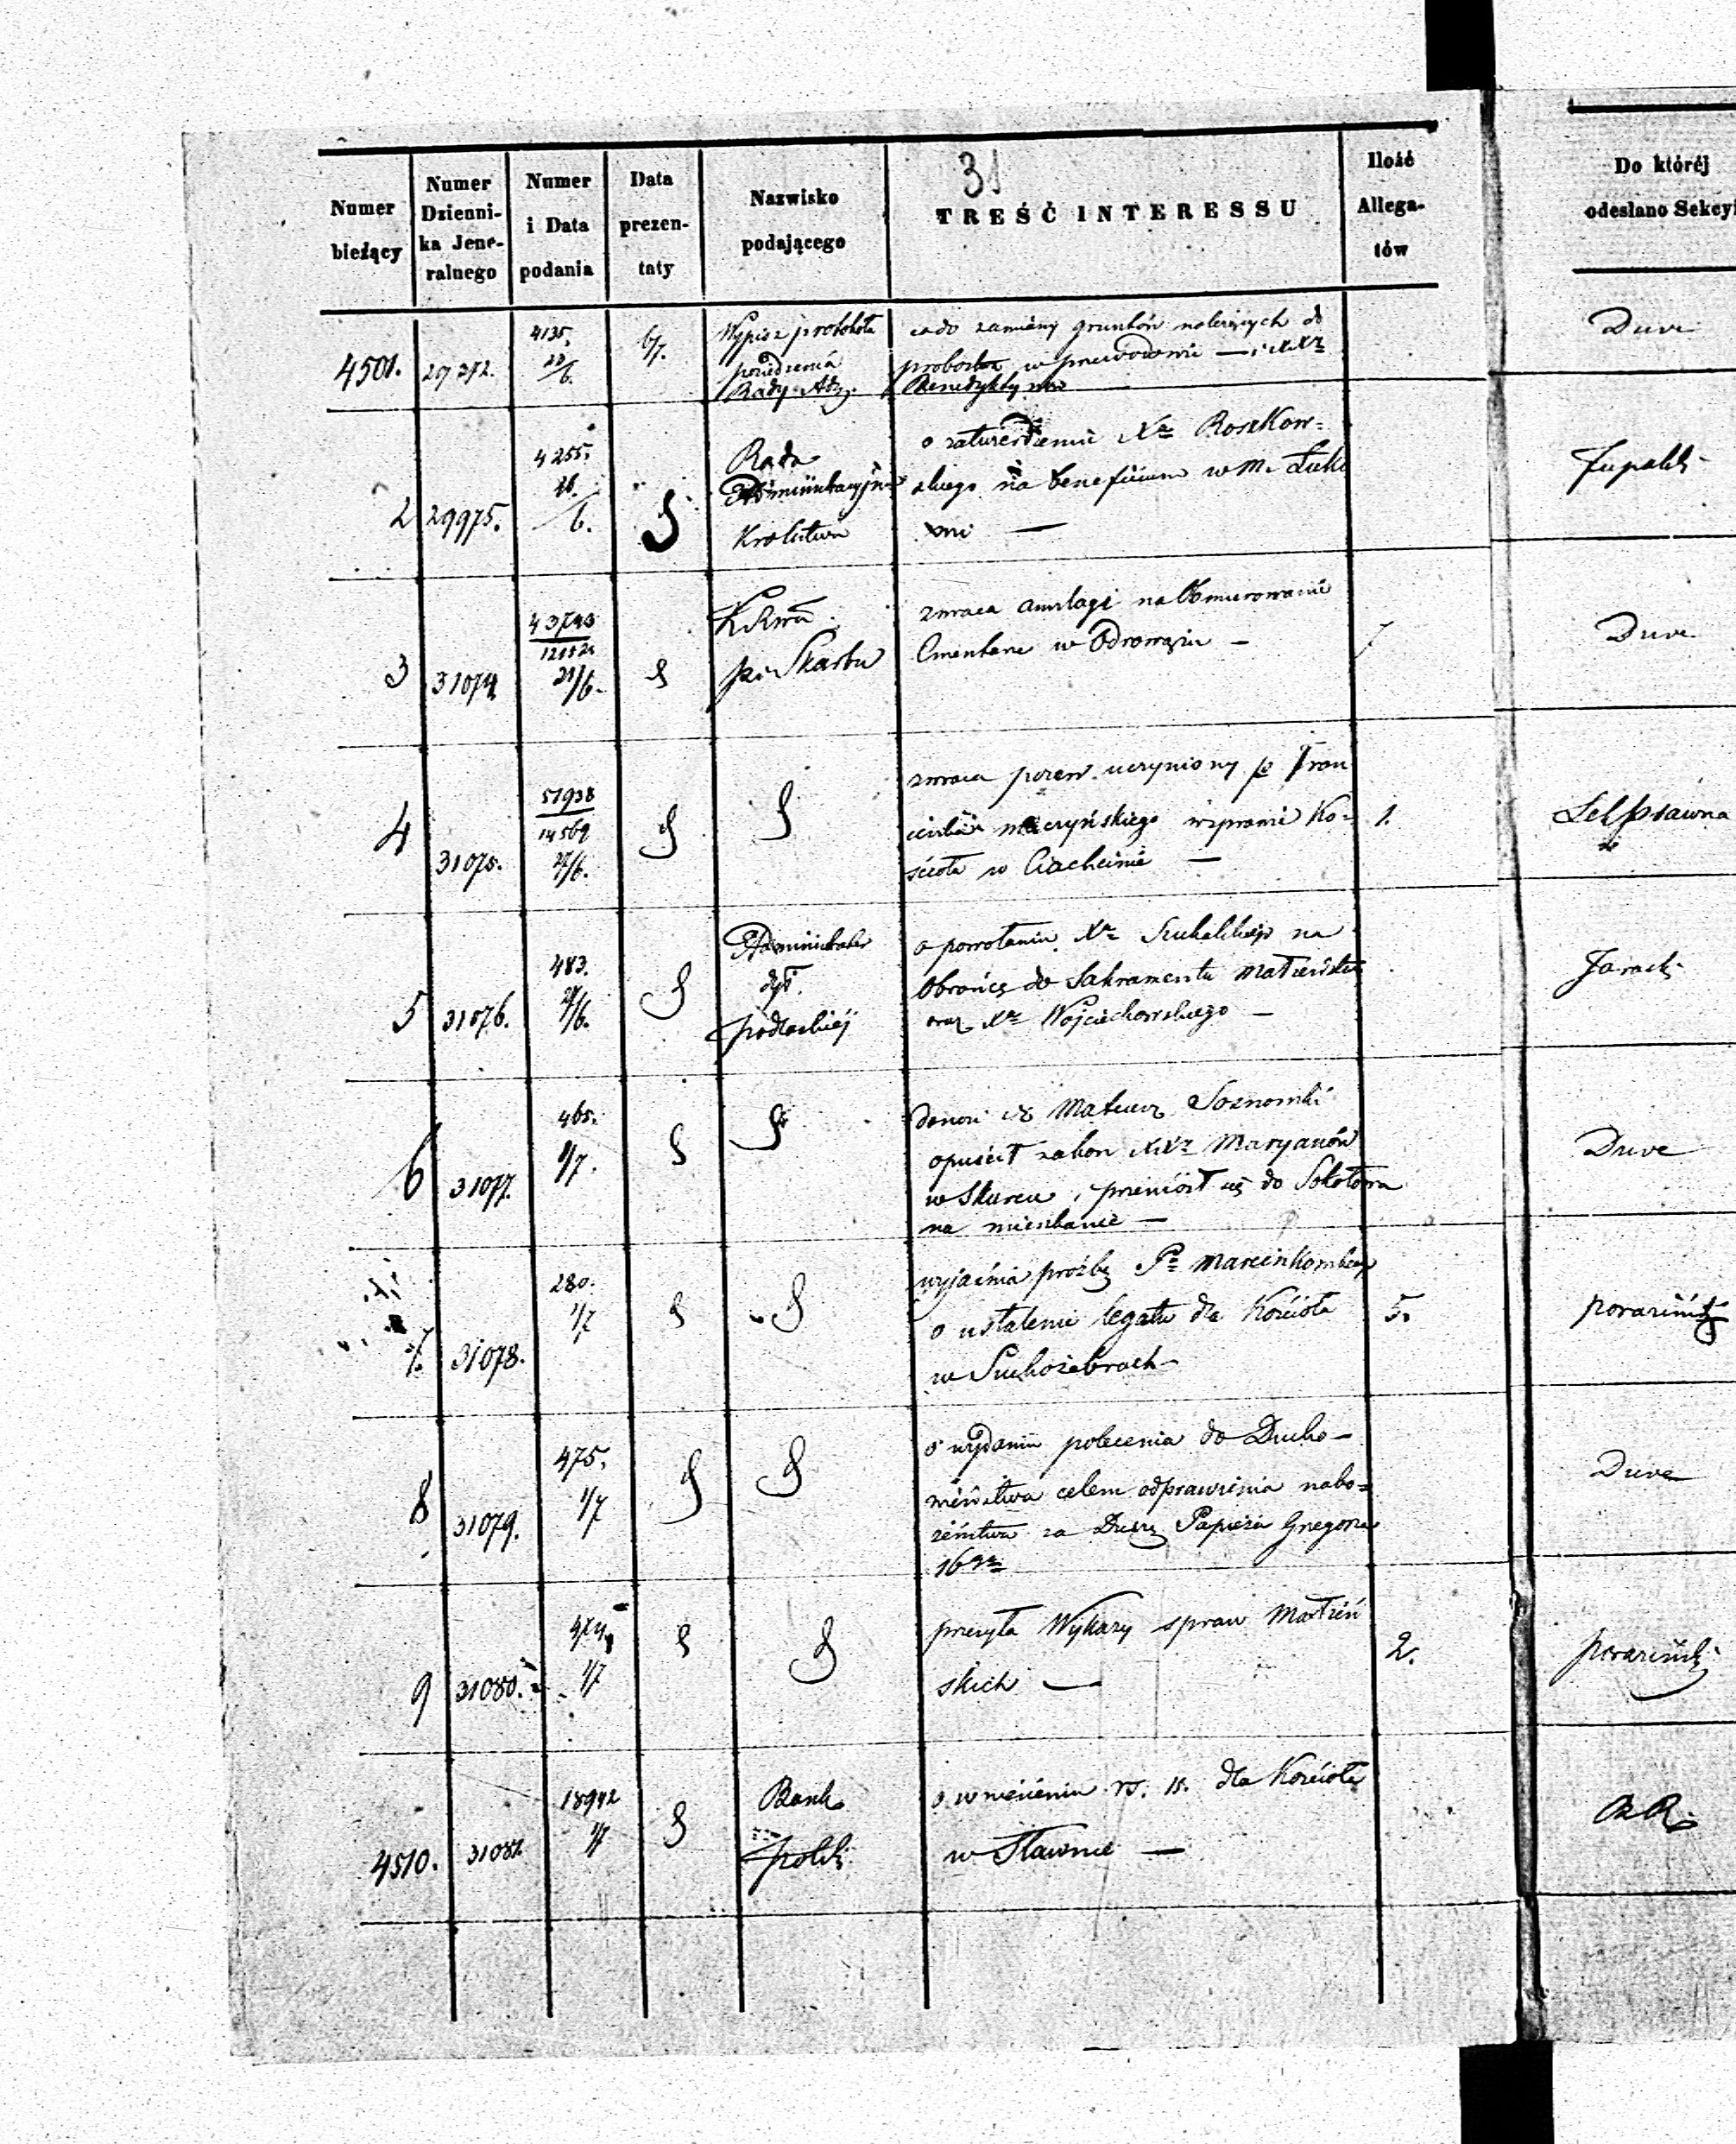 31
Numer bieżący
Numer Dzienni-
ka Jene-
ralnego
Numer
i Data
podania
Data
prezen-
taty
Nazwisko
podającego
TREŚĆ INTERESSU
Ilość
Allega-
tów
Do któréj
odesłano Sekcyi
4501.
29272.
4135.
6/7.
Wypis z protokołu
posiedzenia
Rady Adm.
co do zamiany gruntów należących do
probostwa w
Benedyktynów
Duve
2
29975.
4255.
/6.
Rada
Administracyjna
Królestwa
o zatwierdzenie Xa Roszkow=
skiego na beneficium w M.
Zupalski
3
31074
43743
21/6.
K. Rwa
Pr. i Skarbu
zwraca anszlagi na Obmurowanie
Cmentarza w Odrowążu —
Duve
4
31075.
51938
14569
27/6.
zwraca pozew uczyniony pz Fran
ciszka Mączyńskiego wsprawie Ko=
ścioła w Ciachcinie —
1.
Sek prawna
5
31076.
483.
/6.
Administrator
dyi
podlaskiéj
o powołaniu Xa Szukalskiego na
Obrońcę do Sakramentu Małżeństwa
oraz Xa Wojciechowskiego —
Jaracki
6
31077.
465.
1/7.
donosi iż Mateusz Sosnowski
opuścił zakon XXy Maryanów
w Skurcu, i przeniósł się do Sokołowa
na mieszkanie —
Duve
7.
31078.
280.
1/7
wyjaśnia prośbę Pa Marcinkowskiego
o ustalenie legatu dla Kościoła
w Suchożebrach —
5.
Poraziński
8
31079.
475.
1/7
o wydanie polecenia do Ducho-
wieństwa celem odprawienia nabo=
żeństwa za Duszę Papieża Gregorza
16go
Duve
9
31080.
474
1/7
przesyła Wykazy spraw Małżeń
skich —
2.
Poraziński
4510.
31082
18942
1/7
Bank
Polski
o wniesieniu rs. 15. dla Kościoła
w Sławnie —